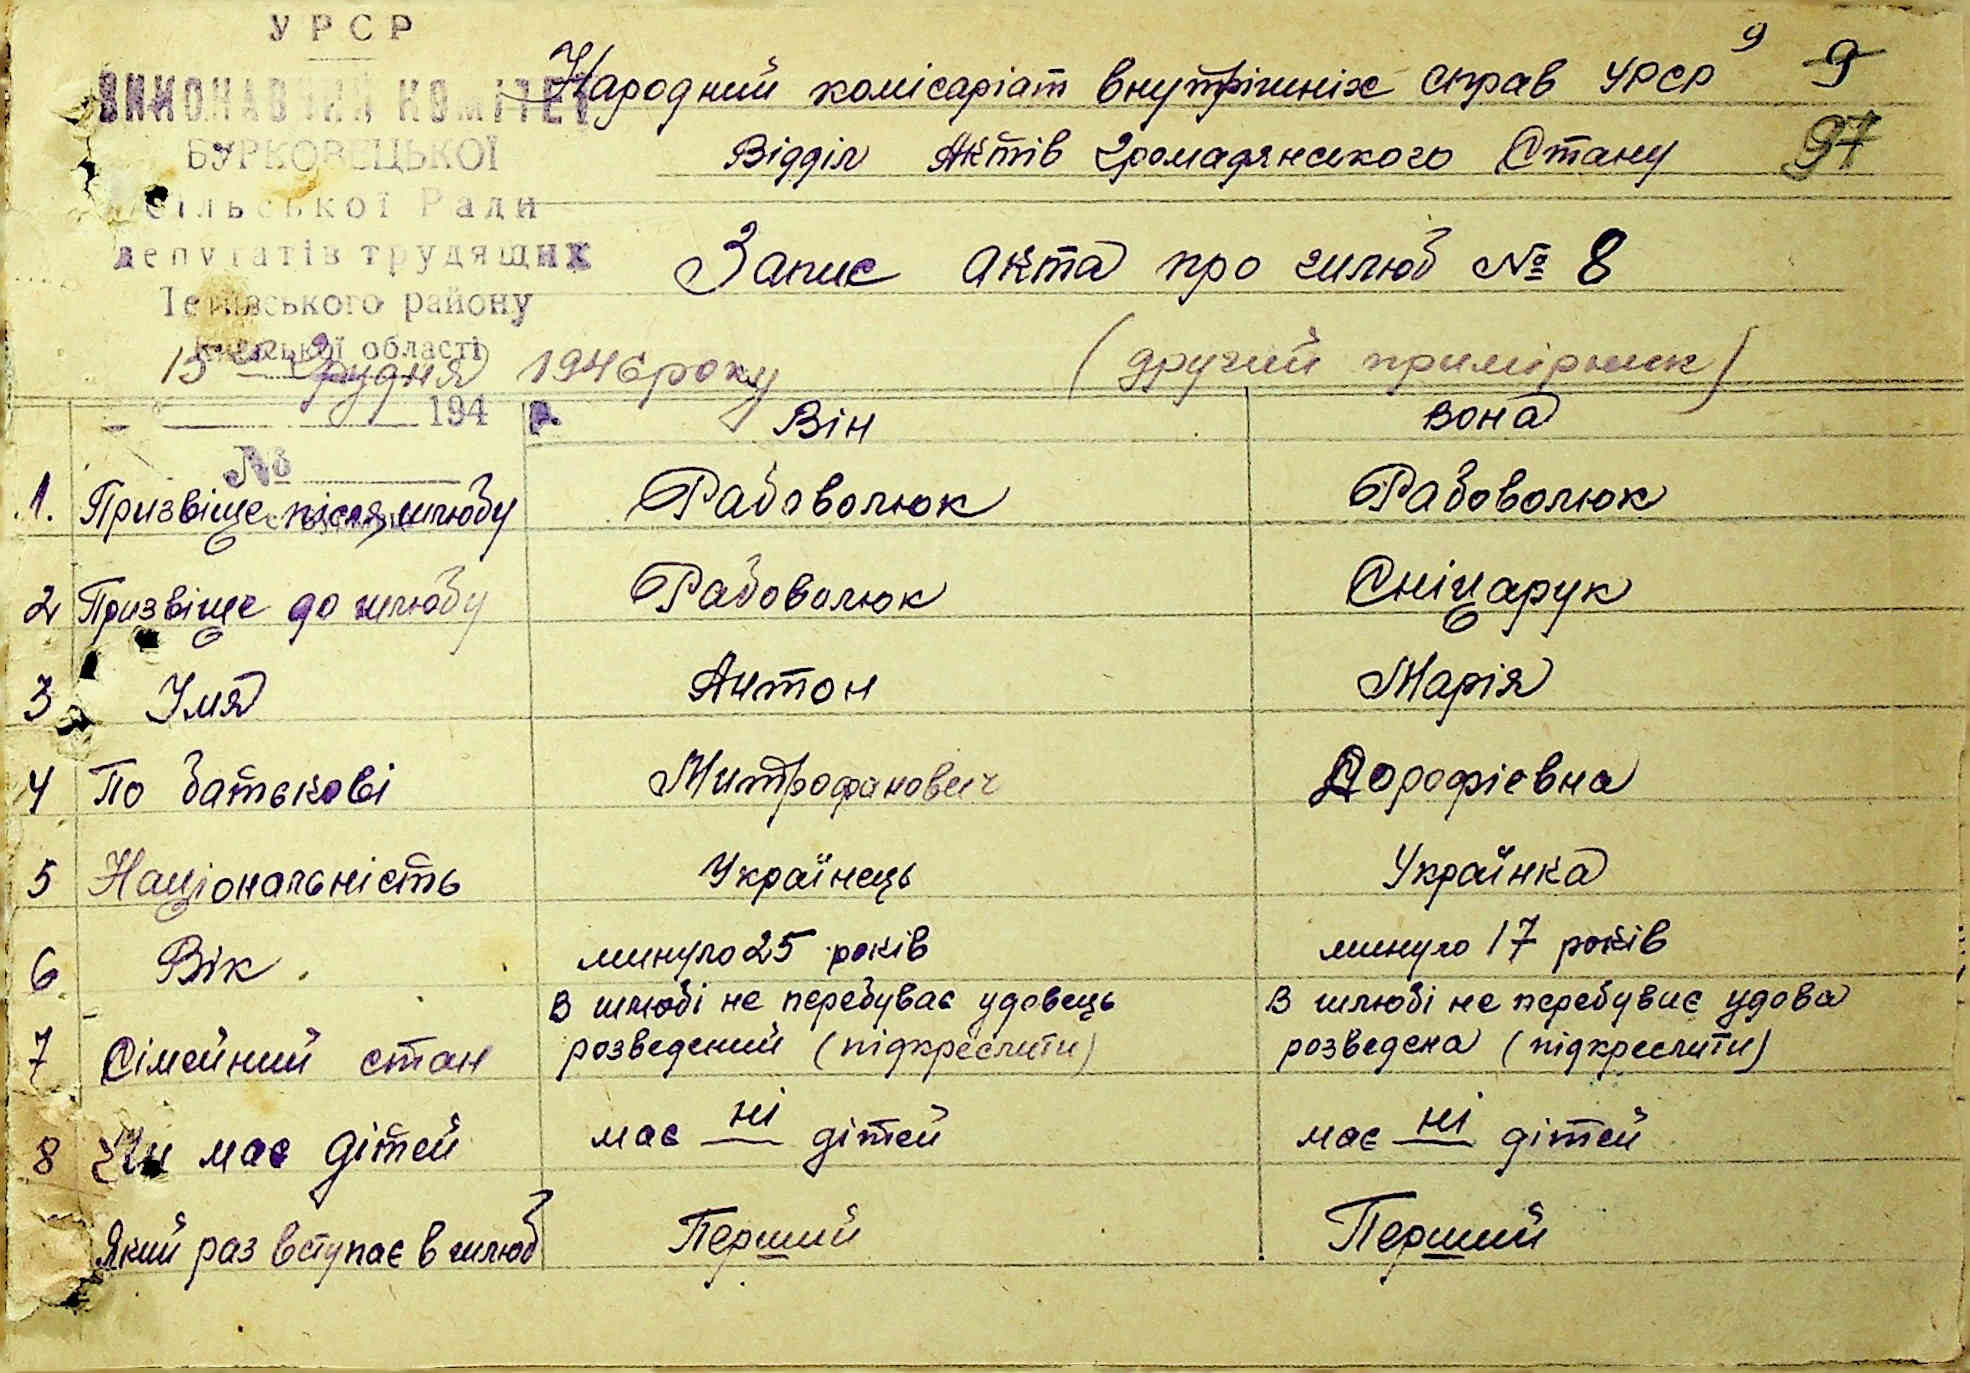 УРСР
ВИКОНАВЧИЙ КОМІТЕТ
БУРКОВЕЦЬКОЇ
сільської Ради
депутатів трудящих
району
області
194 р.
№
9 9
97
Народний комісаріат внутрішніх справ УРСР
Відділ Актів громадянського Стану
Запис акта про шлюб № 8
15го Грудня 1946 року (другий примірник)
Він Вона
1. Призвіще після шлюбу Рабоволюк Рабоволюк
2 Призвіще до шлюбу Рабоволюк Сніцарук
3 Імя Антон Марія
4 По батькові Митрофанович Дорофієвна
5 Національність Українець Українка
6 Вік минуло 25 років минуло 17 років
В шлюбі не перебуває удовець В шлюбі не перебуває удова
7 Сімейний стан розведений (підкреслити) розведена (підкреслити)
8 Чи має дітей має ні дітей має ні дітей
Який раз вступає в шлюб Перший Перший